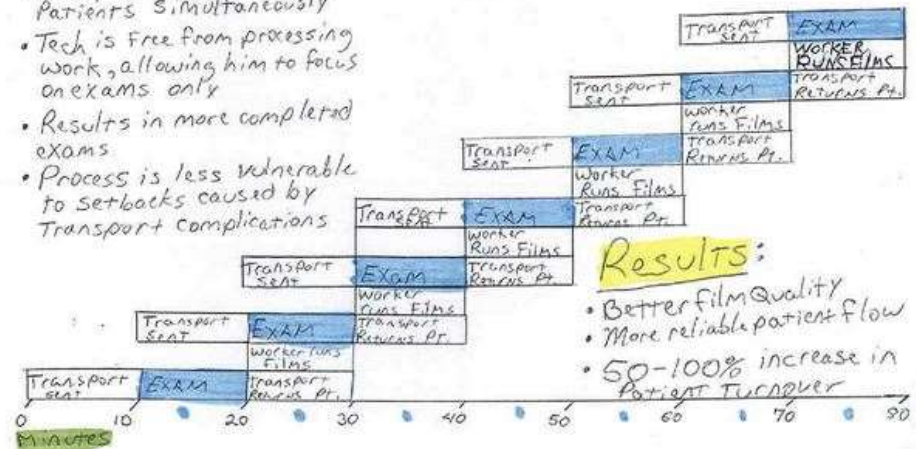 Patients Simultaneously
• Tech is Free from processing
work, allowing him to focus
on exams only
• Results in more completed
exams
• Process is less vulnerable
to setbacks caused by
Transport Complications
Transport
sent
EXAM
WORKER
RUNS Films
Transport
sent
EXAM
Transport
Returns Pt.
worker
runs Films
Transport
sent
EXAM
Transport
Returns Pt.
Worker
Runs Films
Transport
sent
EXAM
Transport
Returns Pt.
Worker
Runs Films
Transport
sent
Exam
Transport
Returns Pt.
Worker
runs Films
Transport
sent
EXAM
Transport
Returns Pt.
worker runs
films
Transport
sent
EXAM
Transport
Returns Pt.
Results:
• Better film Quality
• More reliable patient flow
• 50-100% increase in
Patient Turnover
0 10 20 30 40 50 60 70 80
Minutes